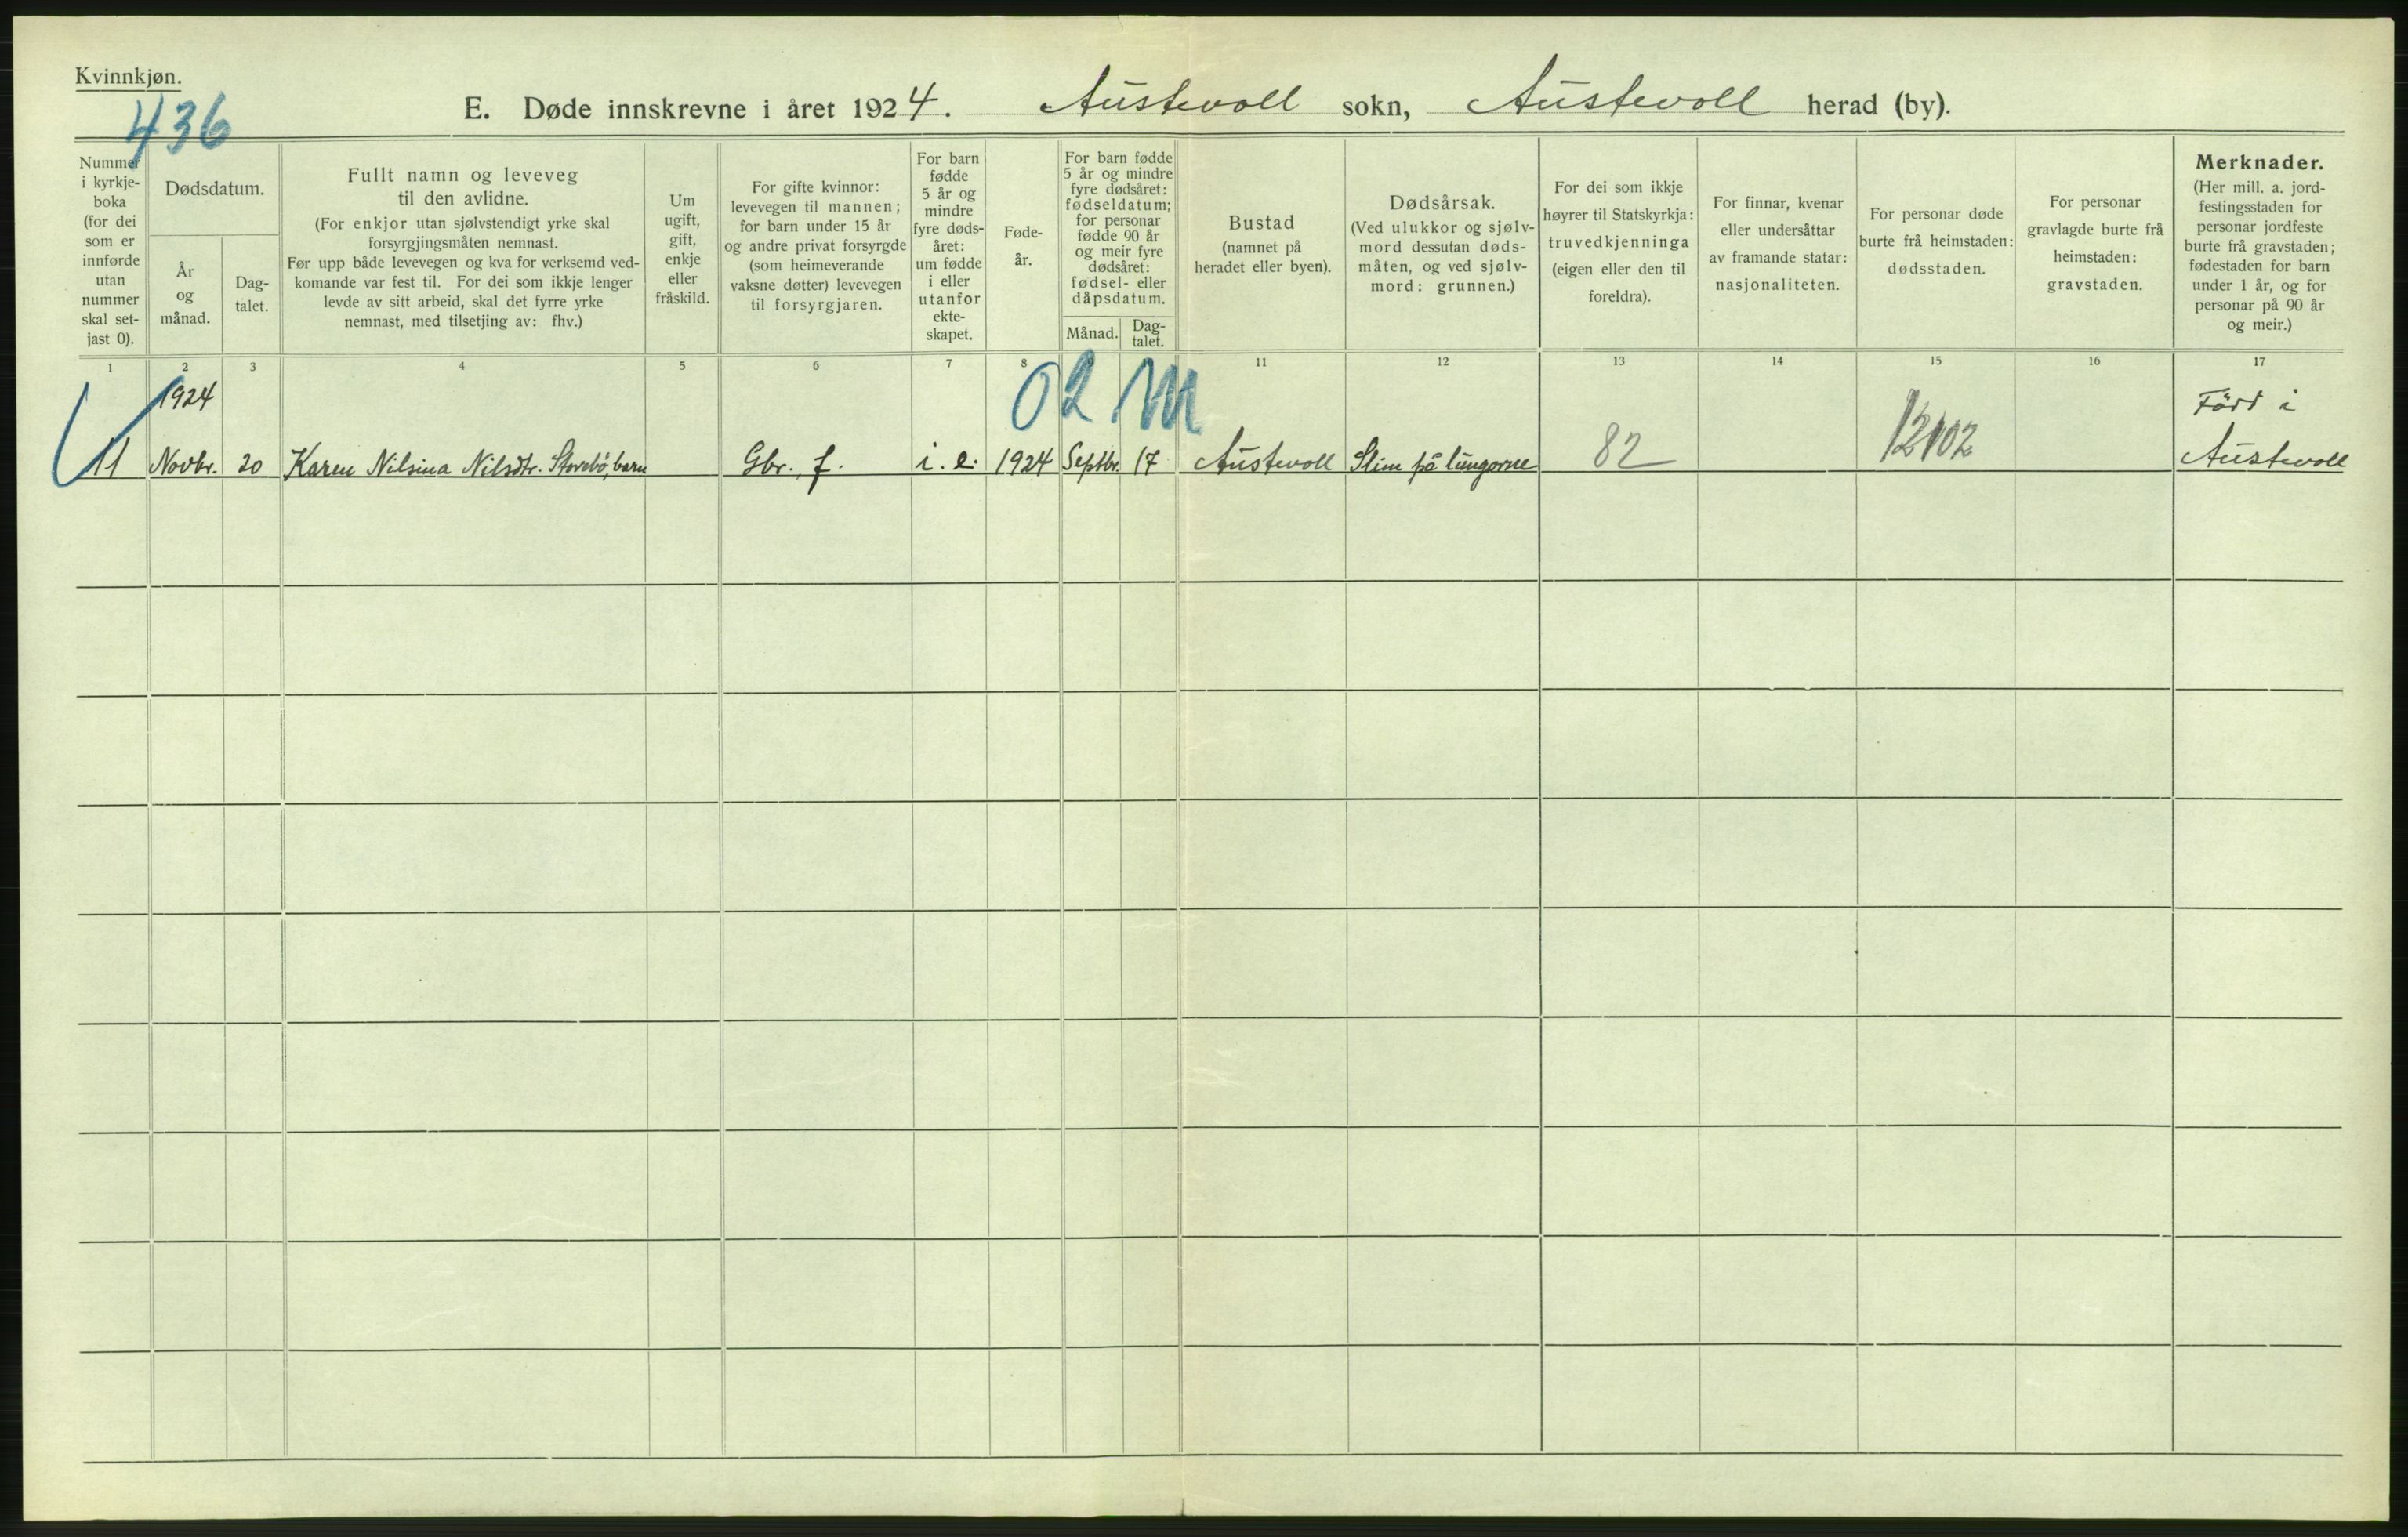 Kvinnkjøn.
436
E. Døde innskrevne i året 1924. Austevoll sokn, Austevoll herad (by).
Nummer
i kyrkje-
boka
(for dei
som er
innførde
utan
nummer
skal set-
jast 0).
Dødsdatum.
År
og
månad.
Dag-
talet.
Fullt namn og leveveg
til den avlidne.
(For enkjor utan sjølvstendigt yrke skal
forsyrgjingsmåten nemnast.
Før upp både levevegen og kva for verksemd ved-
komande var fest til. For dei som ikkje lenger
levde av sitt arbeid, skal det fyrre yrke
nemnast, med tilsetjing av: fhv.)
Um
ugift,
gift,
enkje
eller
fråskild.
For gifte kvinnor:
levevegen til mannen;
for barn under 15 år
og andre privat forsyrgde
(som heimeverande
vaksne døtter) levevegen
til forsyrgjaren.
For barn
fødde
5 år og
mindre
fyre døds-
året:
um fødde
i eller
utanfor
ekte-
skapet.
Føde-
år.
For barn fødde
5 år og mindre
fyre dødsåret:
fødseldatum;
for personar
fødde 90 år
og meir fyre
dødsåret:
fødsel- eller
dåpsdatum.
Månad.
Dag-
talet.
Bustad
(namnet på
heradet eller byen).
Dødsårsak.
(Ved ulukkor og sjølv-
mord dessutan døds-
måten, og ved sjølv-
mord: grunnen.)
For dei som ikkje
høyrer til Statskyrkja:
truvedkjenninga
(eigen eller den til
foreldra).
For finnar, kvenar
eller undersåttar
av framande statar:
nasjonaliteten.
For personar døde
burte frå heimstaden:
dødsstaden.
For personar
gravlagde burte frå
heimstaden:
gravstaden.
Merknader.
(Her mill. a. jord-
festingsstaden for
personar jordfeste
burte frå gravstaden;
fødestaden for barn
under 1 år, og for
personar på 90 år
og meir.)
1 2 3 4 5 6 7 8 11 12 13 14 15 16 17
02 m
1924
Född i
11 Novbr. 20 Karen Nilsina Nilsdtr. Storebö, barn Gbr., f. i. e. 1924 Septbr. 17 Austevoll Slim på lungorne 82 12102 Austevoll